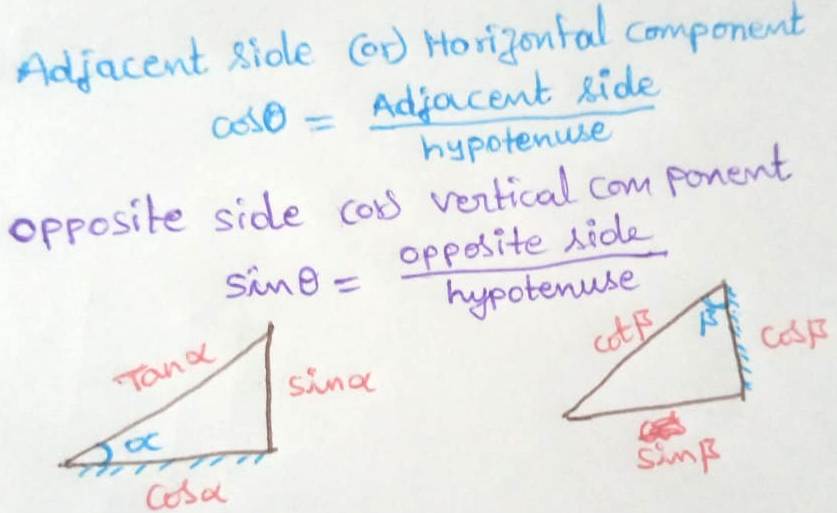 Adjacent side (or) Horizontal component
cosθ = Adjacent side
hypotenuse
opposite side (or) vertical component
sinθ = opposite side
hypotenuse
Tanα
sinα
α
cosα
cotβ
β
cosβ
sinβ